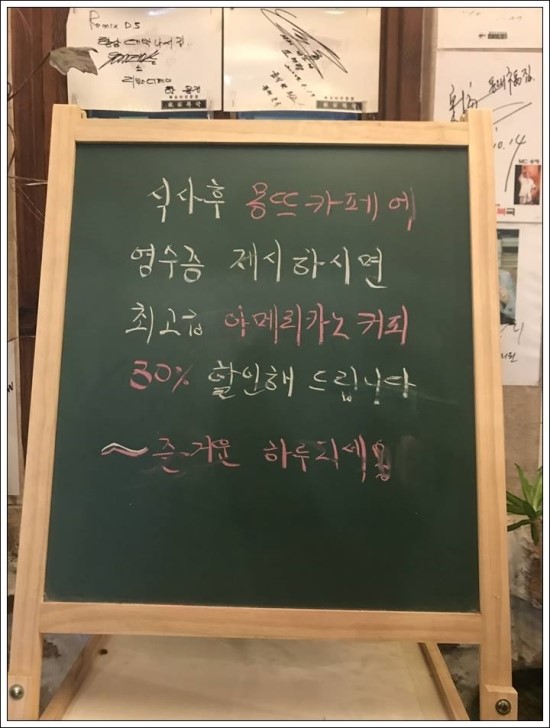 Remix D.5
식사후 몽뜨카페에
영수증 제시하시면
최고급 아메리카노 커피
30% 할인해 드립니다
~즐거운 하루되세용